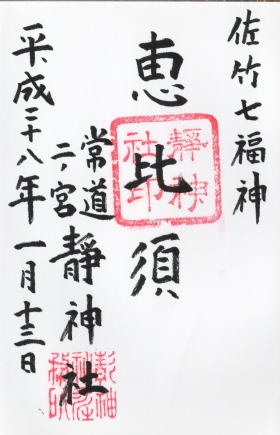 佐竹七福神
恵比須
靜神
社印
常道
二ノ宮
靜神社
平成二十八年一月十三日